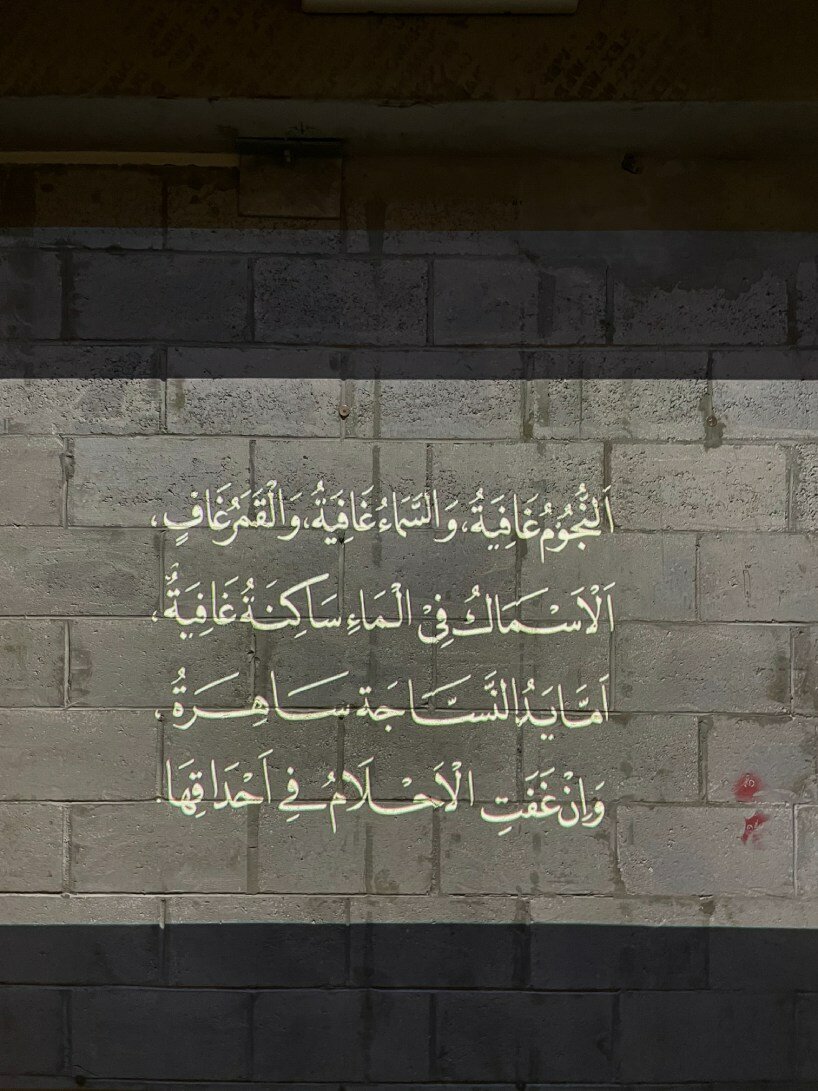 اَلنُّجُوْمُ غَافِيَةٌ، وَالسَّمَاءُ غَافِيَةٌ، وَالْقَمَرُ غَافٍ،
اَلْاَسْمَاكُ فِيْ الْمَاءِ سَاكِنَةٌ غَافِيَةٌ،
اَمَّا يَدُ النَّسَّاجَة سَاهِرَةٌ،
وَاِنْ غَفَتِ الْاَحْلَامُ فِي اَحْدَاقِهَا.